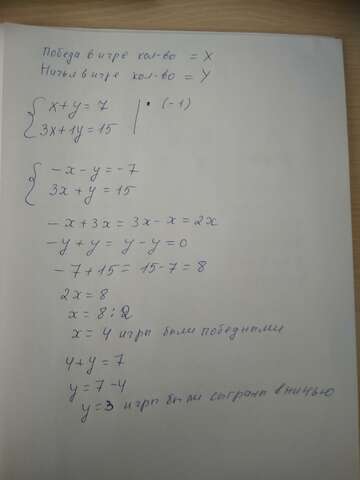 Победа в игре кол-во = X
Ничья в игре кол-во = Y
{ x+y=7 | • (-1)
{ 3x+1y=15
{ -x-y=-7
{ 3x+y=15
-x+3x=3x-x=2x
-y+y=y-y=0
-7+15=15-7=8
2x=8
x=8:2
x=4 игры были победными
4+y=7
y=7-4
y=3 игры были сыграны вничью